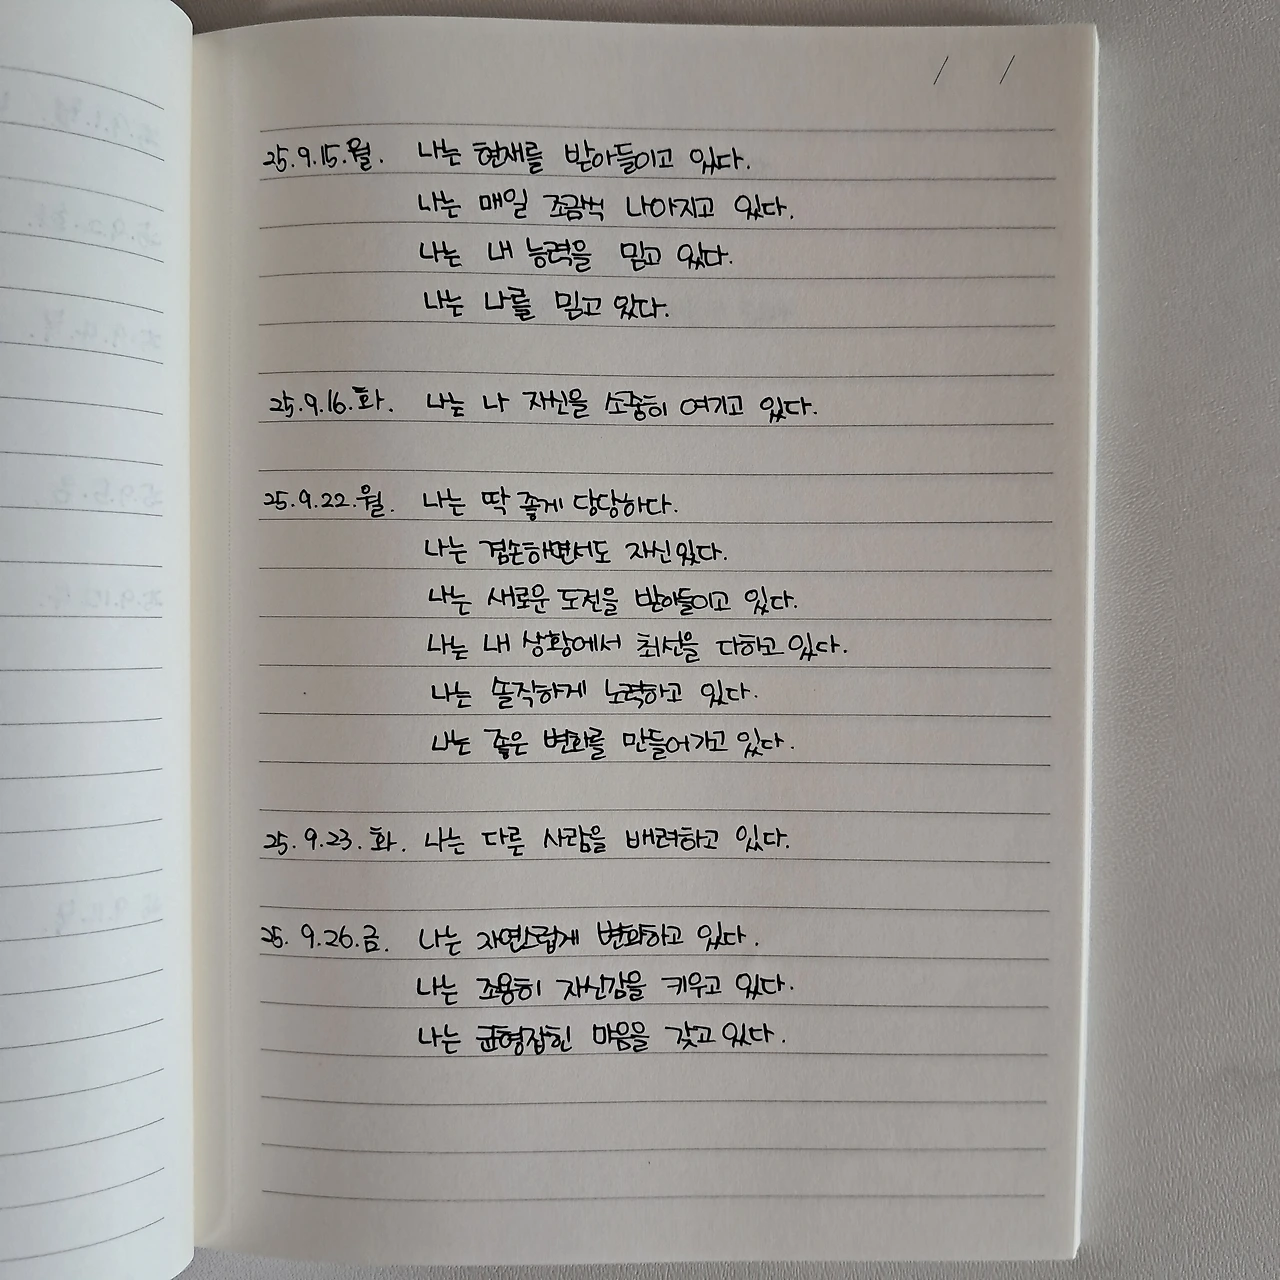 / /
25.9.15.월. 나는 현재를 받아들이고 있다.
나는 매일 조금씩 나아지고 있다.
나는 내 능력을 믿고 있다.
나는 나를 믿고 있다.
25.9.16.화. 나는 나 자신을 소중히 여기고 있다.
25.9.22.월. 나는 딱 좋게 당당하다.
나는 겸손하면서도 자신있다.
나는 새로운 도전을 받아들이고 있다.
나는 내 상황에서 최선을 다하고 있다.
나는 솔직하게 노력하고 있다.
나는 좋은 변화를 만들어가고 있다.
25.9.23.화. 나는 다른 사람을 배려하고 있다.
25.9.26.금. 나는 자연스럽게 변화하고 있다.
나는 조용히 자신감을 키우고 있다.
나는 균형잡힌 마음을 갖고 있다.